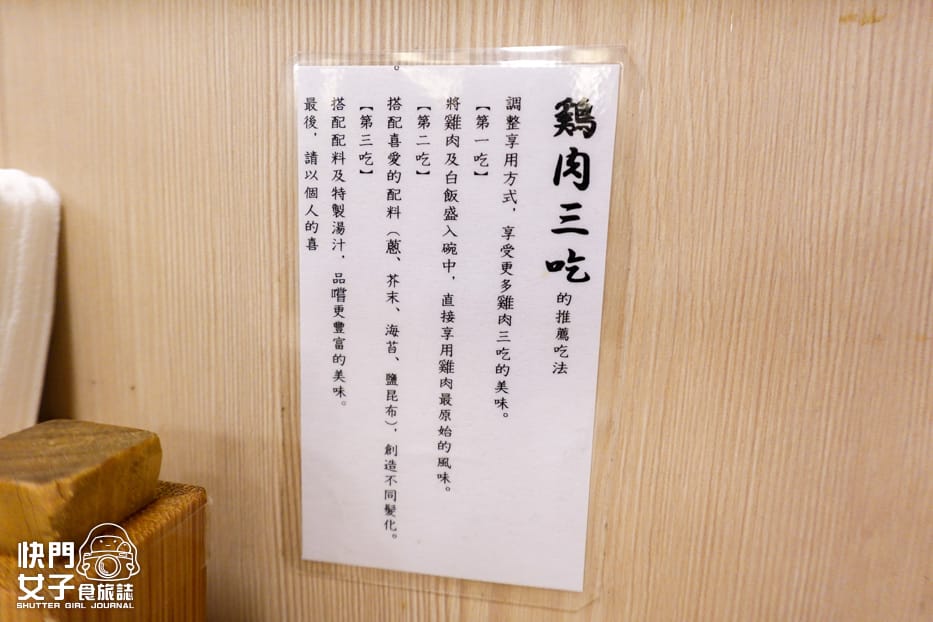 鷄肉三吃的推薦吃法
調整享用方式，享受更多雞肉三吃的美味。
【第一吃】
將雞肉及白飯盛入碗中，直接享用雞肉最原始的風味。
【第二吃】
搭配喜愛的配料（蔥、芥末、海苔、鹽昆布），創造不同變化。
【第三吃】
搭配配料及特製湯汁，品嚐更豐富的美味。
最後，請以個人的喜
。
快門
女子食旅誌
SHUTTER GIRL JOURNAL